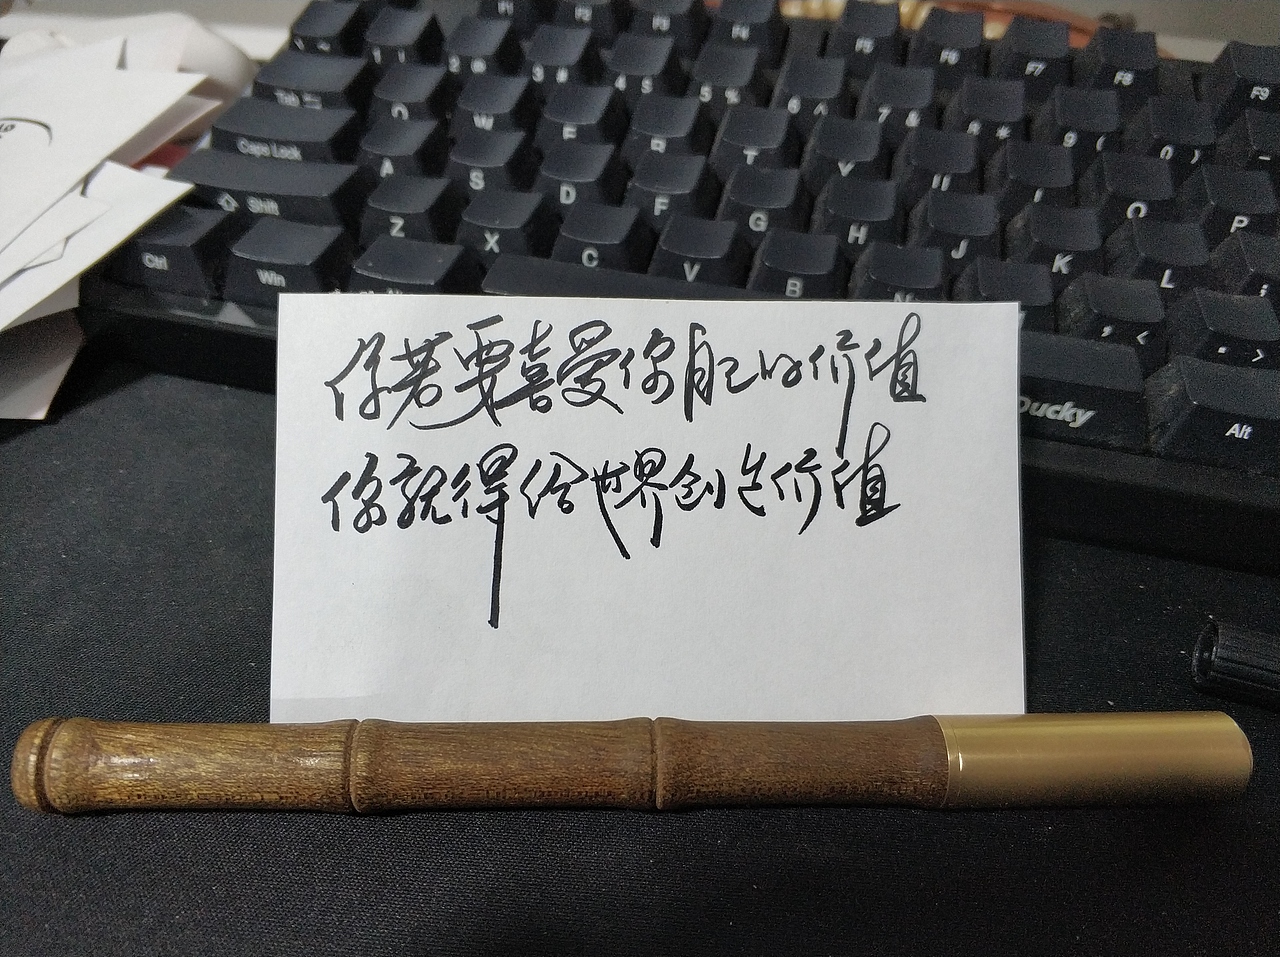 F1 F2 F3 F4 F5 F6 F7 F8 F9
1 ! 2 @ 3 # 4 $ 5 % 6 ^ 7 & 8 * 9 ( 0 ) -
Tab Q W E R T Y U I O P
Caps Lock A S D F G H J K L ;
Shift Z X C V B N , < . >
Ctrl Win Ducky Alt
你若要喜爱你自己的价值
你就得给世界创造价值